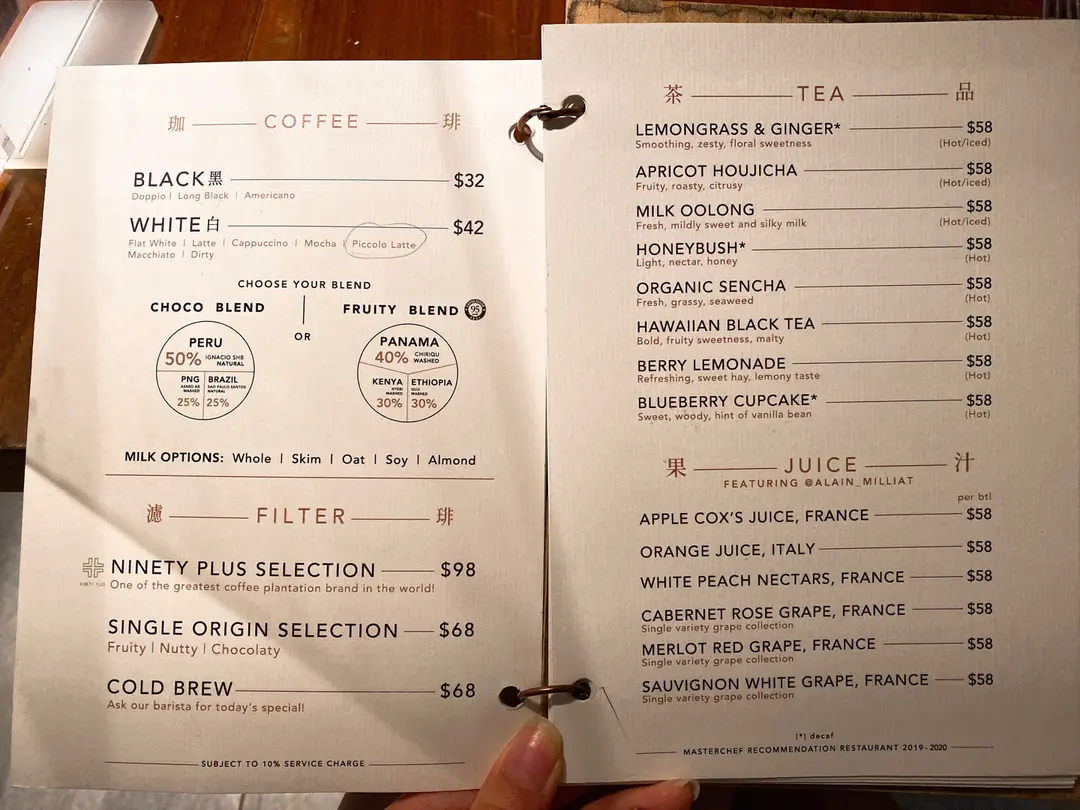 珈 COFFEE 琲
BLACK 黑 $32
Doppio | Long Black | Americano
WHITE 白 $42
Flat White | Latte | Cappuccino | Mocha | Piccolo Latte
Macchiato | Dirty
CHOOSE YOUR BLEND
CHOCO BLEND
OR
FRUITY BLEND 95
PERU
50% IGNACIO SHB
NATURAL
PNG
WASHED
25%
BRAZIL
SAO PAULO SANTOS
NATURAL
25%
PANAMA
40% CHIRIQU
WASHED
KENYA
NYERI
WASHED
30%
ETHIOPIA
WASHED
30%
MILK OPTIONS: Whole | Skim | Oat | Soy | Almond
濾 FILTER 琲
NINETY PLUS SELECTION $98
One of the greatest coffee plantation brand in the world!
SINGLE ORIGIN SELECTION $68
Fruity | Nutty | Chocolaty
COLD BREW $68
Ask our barista for today's special!
SUBJECT TO 10% SERVICE CHARGE
茶 TEA 品
LEMONGRASS & GINGER* $58
Smoothing, zesty, floral sweetness (Hot/iced)
APRICOT HOUJICHA $58
Fruity, roasty, citrusy (Hot/iced)
MILK OOLONG $58
Fresh, mildly sweet and silky milk (Hot/iced)
HONEYBUSH* $58
Light, nectar, honey (Hot)
ORGANIC SENCHA $58
Fresh, grassy, seaweed (Hot)
HAWAIIAN BLACK TEA $58
Bold, fruity sweetness, malty (Hot)
BERRY LEMONADE $58
Refreshing, sweet hay, lemony taste (Hot)
BLUEBERRY CUPCAKE* $58
Sweet, woody, hint of vanilla bean (Hot)
果 JUICE 汁
FEATURING @ALAIN_MILLIAT
per btl
APPLE COX'S JUICE, FRANCE $58
ORANGE JUICE, ITALY $58
WHITE PEACH NECTARS, FRANCE $58
CABERNET ROSE GRAPE, FRANCE $58
Single variety grape collection
MERLOT RED GRAPE, FRANCE $58
Single variety grape collection
SAUVIGNON WHITE GRAPE, FRANCE $58
Single variety grape collection
(*) decaf
MASTERCHEF RECOMMENDATION RESTAURANT 2019-2020